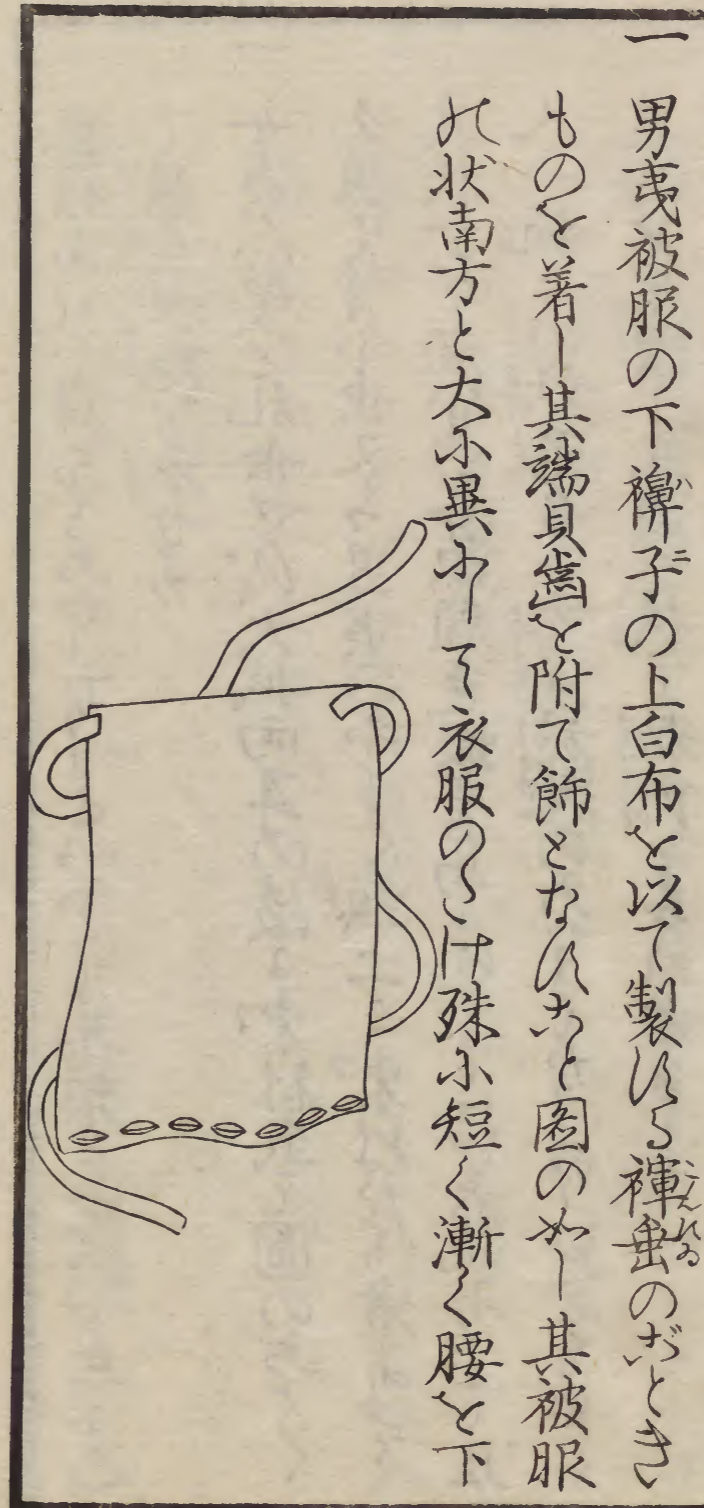 一 男夷被服の下襣子の上白布を以て製する褌垂のごとき
ものを着し其端貝歯を附て飾となすこと圖の如し其被服
の状南方と大に異にして衣服のたけ殊に短く漸く腰を下